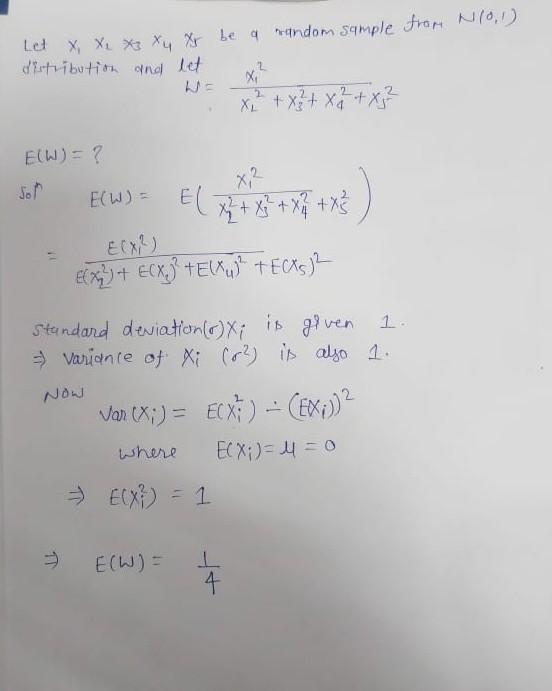 Let X₁ X₂ X₃ X₄ X₅ be a random sample from N(0,1)
distribution and let
W = X₁² / (X₂² + X₃² + X₄² + X₅²)
E(W) = ?
Solⁿ E(W) = E( X₁² / (X₂² + X₃² + X₄² + X₅²) )
= E(X₁²) / (E(X₂²) + E(X₃)² + E(X₄)² + E(X₅)²)
Standard deviation(σ)Xᵢ is given 1.
⇒ Variance of Xᵢ (σ²) is also 1.
NOW
Var(Xᵢ) = E(Xᵢ²) - (E(Xᵢ))²
where E(Xᵢ) = μ = 0
⇒ E(Xᵢ²) = 1
⇒ E(W) = 1/4